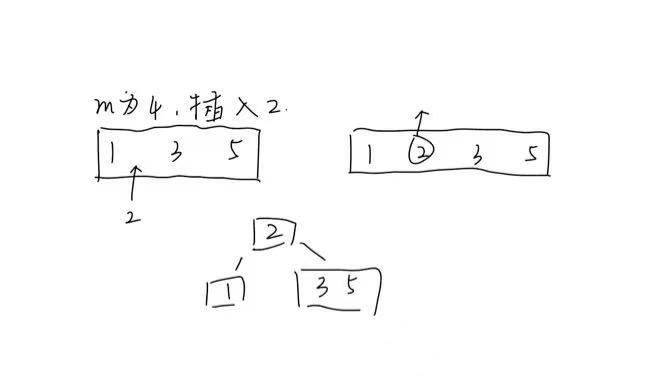 m为4,插入2.
1 3 5
2
1 2 3 5
2
1
3 5